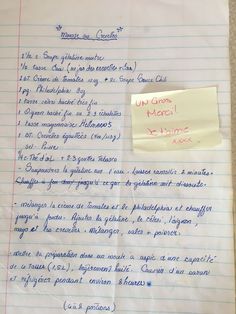 Mousse aux Crevettes
2 1/2 c. Soupe gélatine neutre
1/4 tasse Eau (ou jus des crevettes + Eau)
1 bt. Crème de Tomates 10 oz + 2c. Soupe Sauce Chili
1 pq. Philadelphia 8 oz
1 tasse céleri haché très fin
1 Oignon haché fin ou 2-3 échalottes
1 tasse mayonnaise Hellmann's
2 bt. Crevettes égouttées
Sel - Poivre
1/4 c. Thé d'ail + 2-3 gouttes Tabasco
- Saupoudrer la gélatine sur l'eau - laissez ramollir 2 minutes
Chauffer à feu doux jusqu'à ce que la gélatine soit dissoute.
- mélanger la crème de Tomates et le Philadelphia et chauffer
jusqu'à Ajouter la gélatine, le céleri, l'oignon,
mayo et les crevettes. Mélanger, saler + poivrer.
- mettre la préparation dans un moule à aspic d'une capacité
de 6 Tasses (1,5 L), légèrement huilé. Couvrir d'un saran
et réfrigérer pendant environ 8 heures
(6 à 8 portions)
UN Gros
Merci!
Je t'aime
xxxx